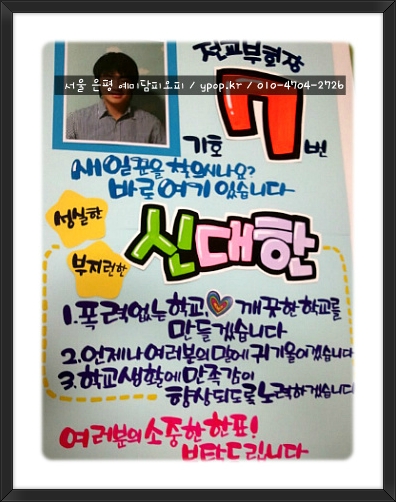 서울 은평 예미담피오피 / ypop.kr / 010-4704-2726
전교부회장
기호 7 번
새일꾼을 찾으시나요?
바로 여기 있습니다
성실한
부지런한
신대한
1. 폭력없는학교, 깨끗한 학교를
만들겠습니다
2. 언제나 여러분의 말에 귀 기울이겠습니다
3. 학교생활에 만족감이
향상되도록 노력하겠습니다
여러분의 소중한 한표!
부탁드립니다